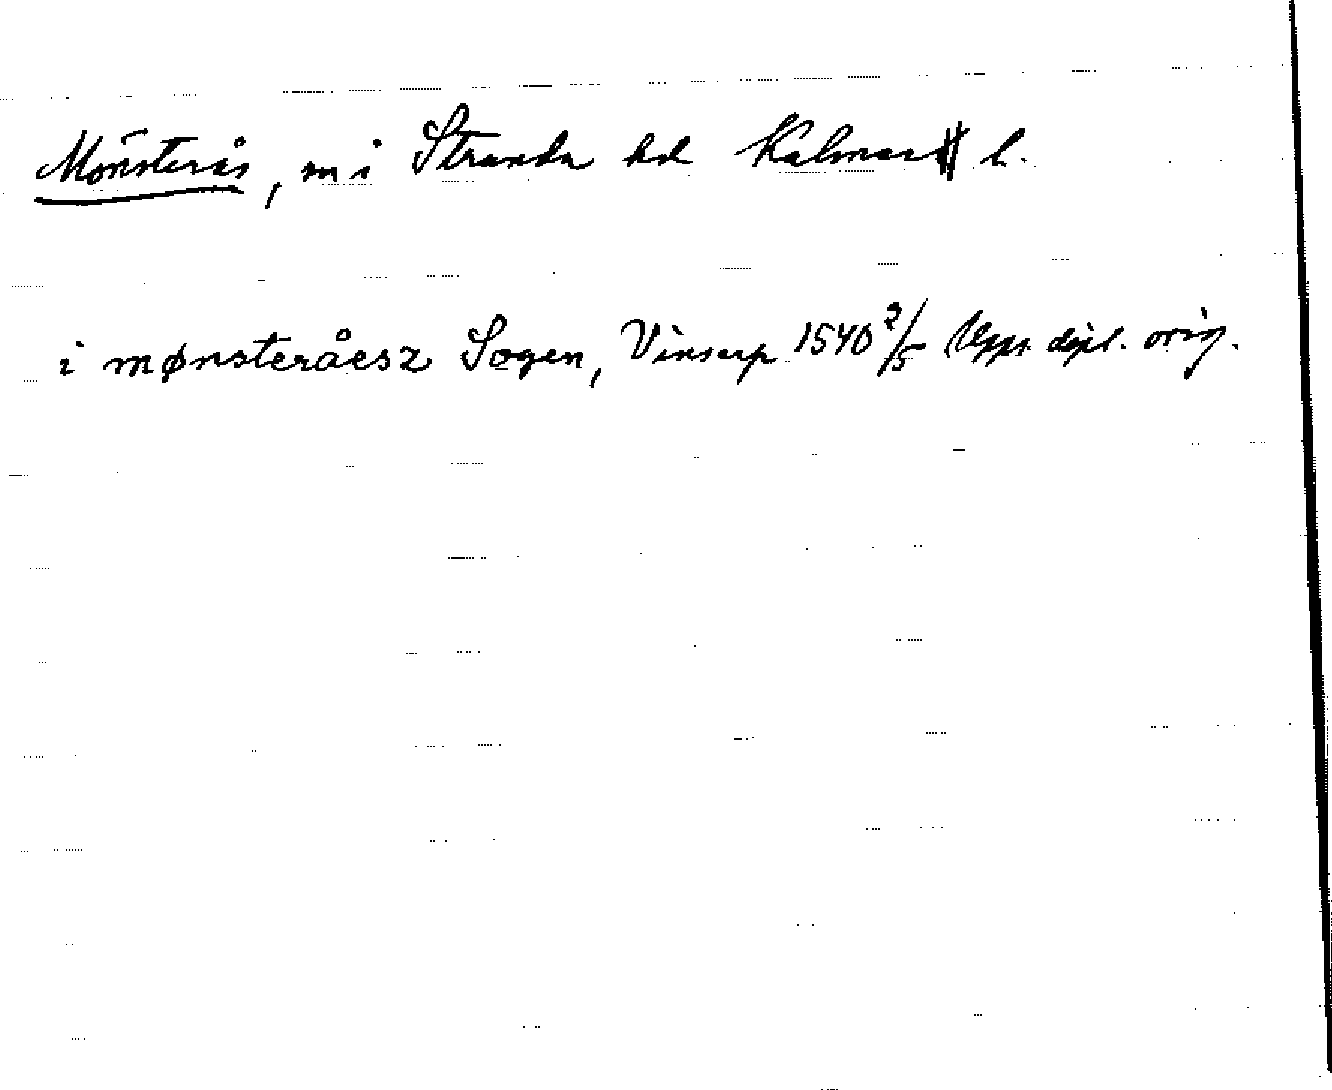 Mönsterås, m i Stranda hd Kalmar l.
i mønsteråesz Sogen, Vinserp 1540 2/5 Upps. dipl. orig.